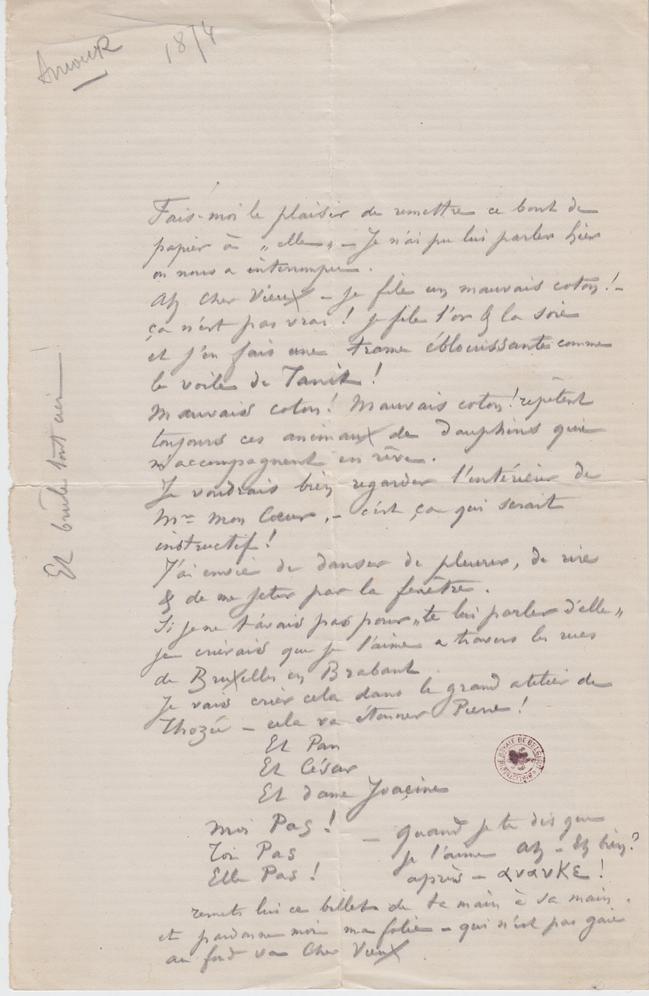 Amour
1874
Fais-moi le plaisir de remettre ce bout de
papier à „elle„ - Je n'ai pu lui parler hier
on nous a interrompu.
Ah Cher Vieux - je file un mauvais coton! -
ça n'est pas vrai! je file l'or & la soie
et j'en fais une trame éblouissante comme
le voile de Tanit!
Mauvais coton! Mauvais coton! répètent
toujours ces animaux de dauphins qui
m'accompagnent en rêve.
Je voudrais bien regarder l'intérieur de
Mr mon Coeur, - c'est ça qui serait
instructif!
J'ai envie de danser de pleurer, de rire
& de me jeter par la fenêtre.
Si je ne t'avais pas pour „te lui parler d'elle„
je crierais que je l'aime a travers les rues
de Bruxelles en Brabant.
Je vais crier cela dans le grand atelier de
Thozée - cela va étonner Pierre!
Et Pan
Et César
Et dame Joacine
Moi Pas!
Toi Pas
Elle Pas!
- quand je te dis que
je l'aime Ah - Eh bien?
après - ανανκε!
remets lui ce billet de ta main à sa main.
et pardonne moi ma folie - qui n'est pas gaie
au fond va Cher Vieux
Et brûle tout ceci!